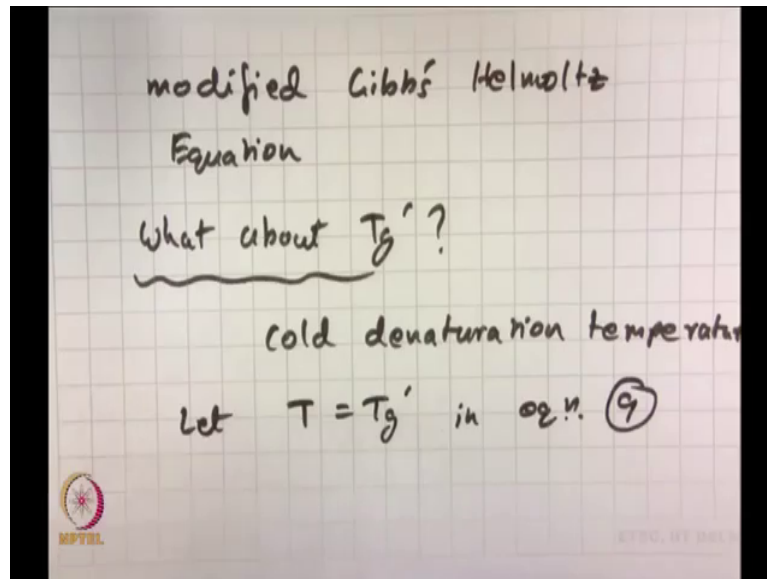 modified Gibbs Helmoltz
Equation
What about Tg' ?
cold denaturation temperatur
Let T = Tg' in eqn. 9
NPTEL
ETSC, IIT DELHI